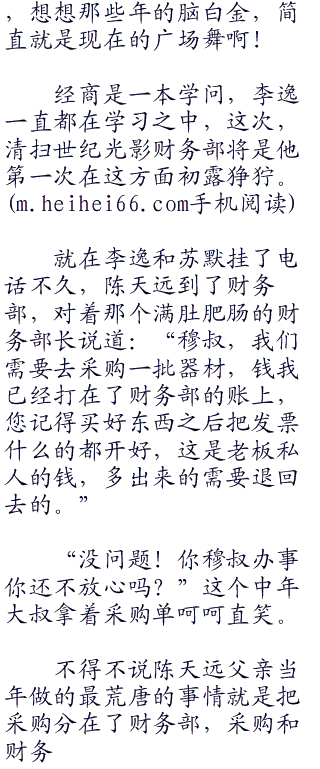 ，想想那些年的脑白金，简
直就是现在的广场舞啊！
经商是一本学问，李逸
一直都在学习之中，这次，
清扫世纪光影财务部将是他
第一次在这方面初露狰狞。
(m.heihei66.com手机阅读)
就在李逸和苏默挂了电
话不久，陈天远到了财务
部，对着那个满肚肥肠的财
务部长说道：“穆叔，我们
需要去采购一批器材，钱我
已经打在了财务部的账上，
您记得买好东西之后把发票
什么的都开好，这是老板私
人的钱，多出来的需要退回
去的。”
“没问题！你穆叔办事
你还不放心吗？”这个中年
大叔拿着采购单呵呵直笑。
不得不说陈天远父亲当
年做的最荒唐的事情就是把
采购分在了财务部，采购和
财务